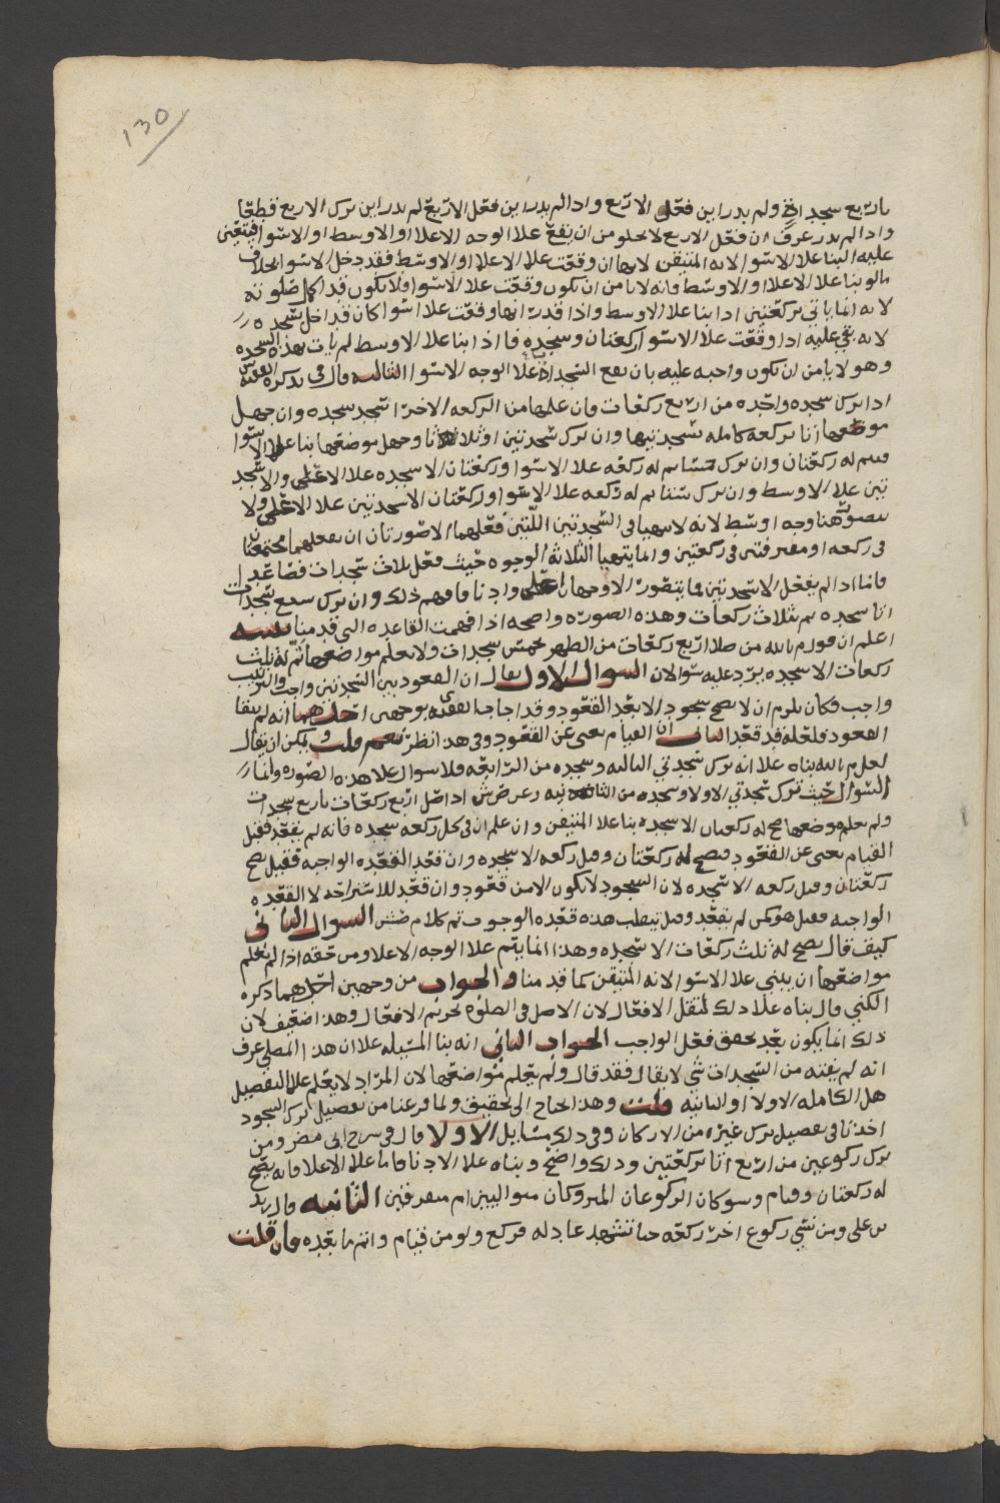 130
باربع سجدات ولم يدر اين فعل الاربع واذا لم يدر اين فعل الاربع لم يدر اين ترك الاربع قطعا
واذا لم يدر عرف ان فعل الاربع لا يخلو من ان يقع علا الوجه الاعلا او الاوسط او الاسوا فيتعين
عليه البنا علا الاسوا لانه المتيقن لانها ان وقعت علا الاعلا او الاوسط فقد دخل الاسوا بخلاف
ما لو بنا علا الاعلا او الاوسط فانه لا يامن ان يكون وقعت علا الاسوا فلا يكون قد اكمل صلوته
لانه انما ياتي بركعتين اذا بنا علا الاوسط واذا قدرنا انها وقعت علا اسوا كان قد اخل بسجده
لانه بقي عليه اذا وقعت علا الاسوا ركعتان وسجده فاذا بنا علا الاوسط لم يات بهذه السجده
وهو لا يامن ان يكون واجبه عليه بان يقع السجدات علا الوجه الاسوا الثالثه قال في تذكرة
اذا ترك سجده واحده من اربع ركعات فان علمها من الركعه الاخرا سجد سجده وان جهل
موضعها اتا بركعه كامله بسجدتيها وان ترك سجدتين او ثلاثا وجهل موضعها بنا علا الاسوا
فيتم له ركعتان وان ترك خمسا تم له ركعه علا الاسوا وركعتان الا سجده علا الاعلى والا سجد
تين علا الاوسط وان ترك ستا تم له ركعه علا الاسوا وركعتان الا سجدتين علا الاعلى ولا
يتصور هنا وجه اوسط لانه لا يتهيا في السجدتين اللتين فعلهما الا صورتان ان يفعلهما مجتمعتان
في ركعه او مفترقتين في ركعتين وانما يتهيا الثلاثه الوجوه حيث فعل ثلاث سجدات فصاعدا
فاما اذا لم يفعل الا سجدتين فما يتصور الا وجهان اعلى وادنا فافهم ذلك وان ترك سبع سجدات
اتا بسجده ثم بثلاث ركعات وهذه الصوره واضحه اذا فهمت القاعده التي قدمنا تنبيه
اعلم ان قول م بالله من صلا اربع ركعات من الظهر بخمس سجدات ولا يعلم مواضعها تم له ثلث
ركعات الا سجده يرد عليه سوالان السوال الاول يقال ان القعود بين السجدتين واجب والترتيب
واجب فكان يلزم ان لا يصح سجود الا بعد القعود وقد اجاب الفقيه ى بوجهين احدهما انه لم ينفا
القعود فلعله قد قعد الثاني ان القيام يغني عن القعود وفي هذا نظر نعم قلت ويمكن ان يقال
لعل م بالله بناه علا انه ترك سجدتي الثالثه وسجده من الرابعه فلا سوال علا هذه الصوره وانما
السوال حيث ترك سجدتي الاولا وسجده من الثانيه فرع رض اذا صلى اربع ركعات باربع سجدات
ولم يعلم موضعها صح له ركعتان الا سجده بنا علا المتيقن وان علم ان في كل ركعه سجده فانه لم يقعد فقيل
القيام يغني عن القعود فيصح له ركعتان وقيل ركعه الا سجده وان قعد القعده الواجبه فقيل يصح
ركعتان وقيل ركعه الا سجده لان السجود لا يكون الا من قعود وان قعد للاستراحه لا القعده
الواجبه فقيل هو كمن لم يقعد وقيل تنقلب هذه قعده الوجوب تم كلام ض السوال الثاني
كيف قال يصح له ثلث ركعات الا سجده وهذا انما يتم علا الوجه الاعلا ومن حقه اذا لم يعلم
مواضعها ان يبني علا الاسوا لانه المتيقن كما قدمنا والجواب من وجهين احدهما ذكره
الكني قال بناه علا ذلك لثقل الافعال لان الاصل في الصلوه تحريم الافعال وهذا ضعيف لان
ذلك انما يكون بعد تحقق فعل الواجب الجواب الثاني انه بنا المسئله علا ان هذا المصلي عرف
انه لم يفته من السجدات شي لا يقال فقد قال ولم يعلم مواضعها لان المراد لا يعلم علا التفصيل
هل الكامله الاولا او الثانيه قلت وهذا يحتاج الى تحقيق ولما فرغنا من تفصيل ترك السجود
اخذنا في تفصيل ترك غيره من الاركان وفي ذلك مسايل الاولا قال في شرح ابي مضر ومن
ترك ركوعين من اربع اتا بركعتين وذلك واضح وبناه علا الادنا فاما علا الاعلا فانه يصح
له ركعتان وقيام وسوا كان الركوعان المتروكان متواليين ام مفترقين الثانيه قال زيد
بن علي ومن نسي ركوع اخر ركعه حتا تشهد عاد له فركع ولو من قيام واتم ما بعده فان قلت